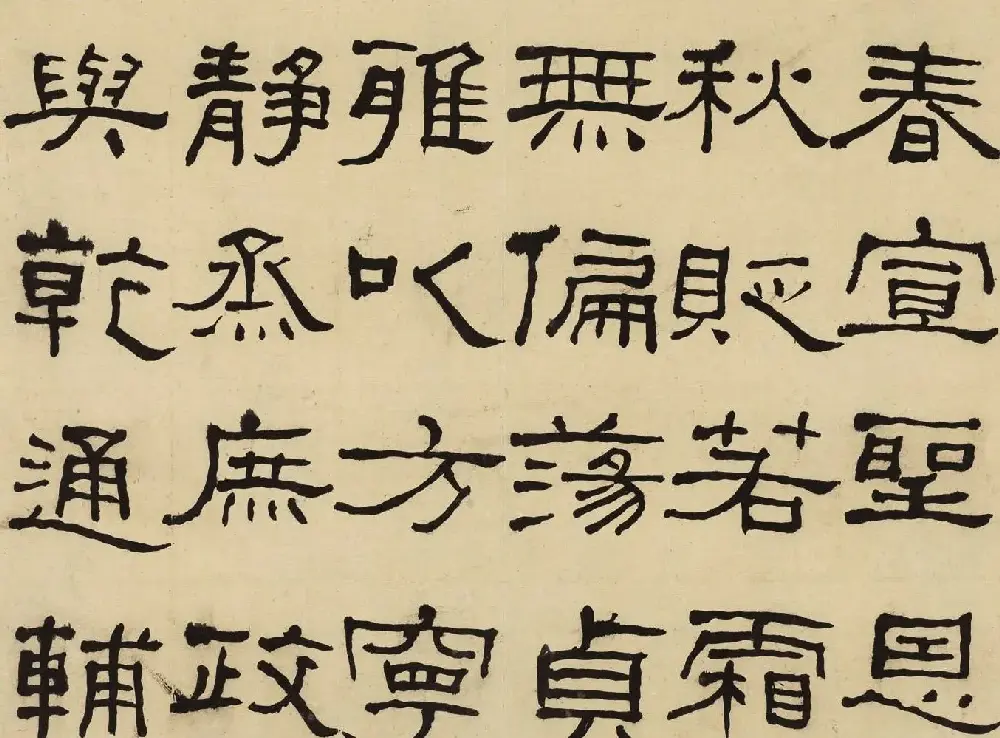 春宣聖恩
秋貶若霜
無偏蕩貞
雅以方寧
靜烝庶政
與乾通輔